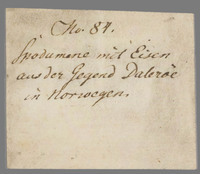 No. 84.
Spodumene mit Eisen
aus der Gegend Daleröe
in Norwegen.